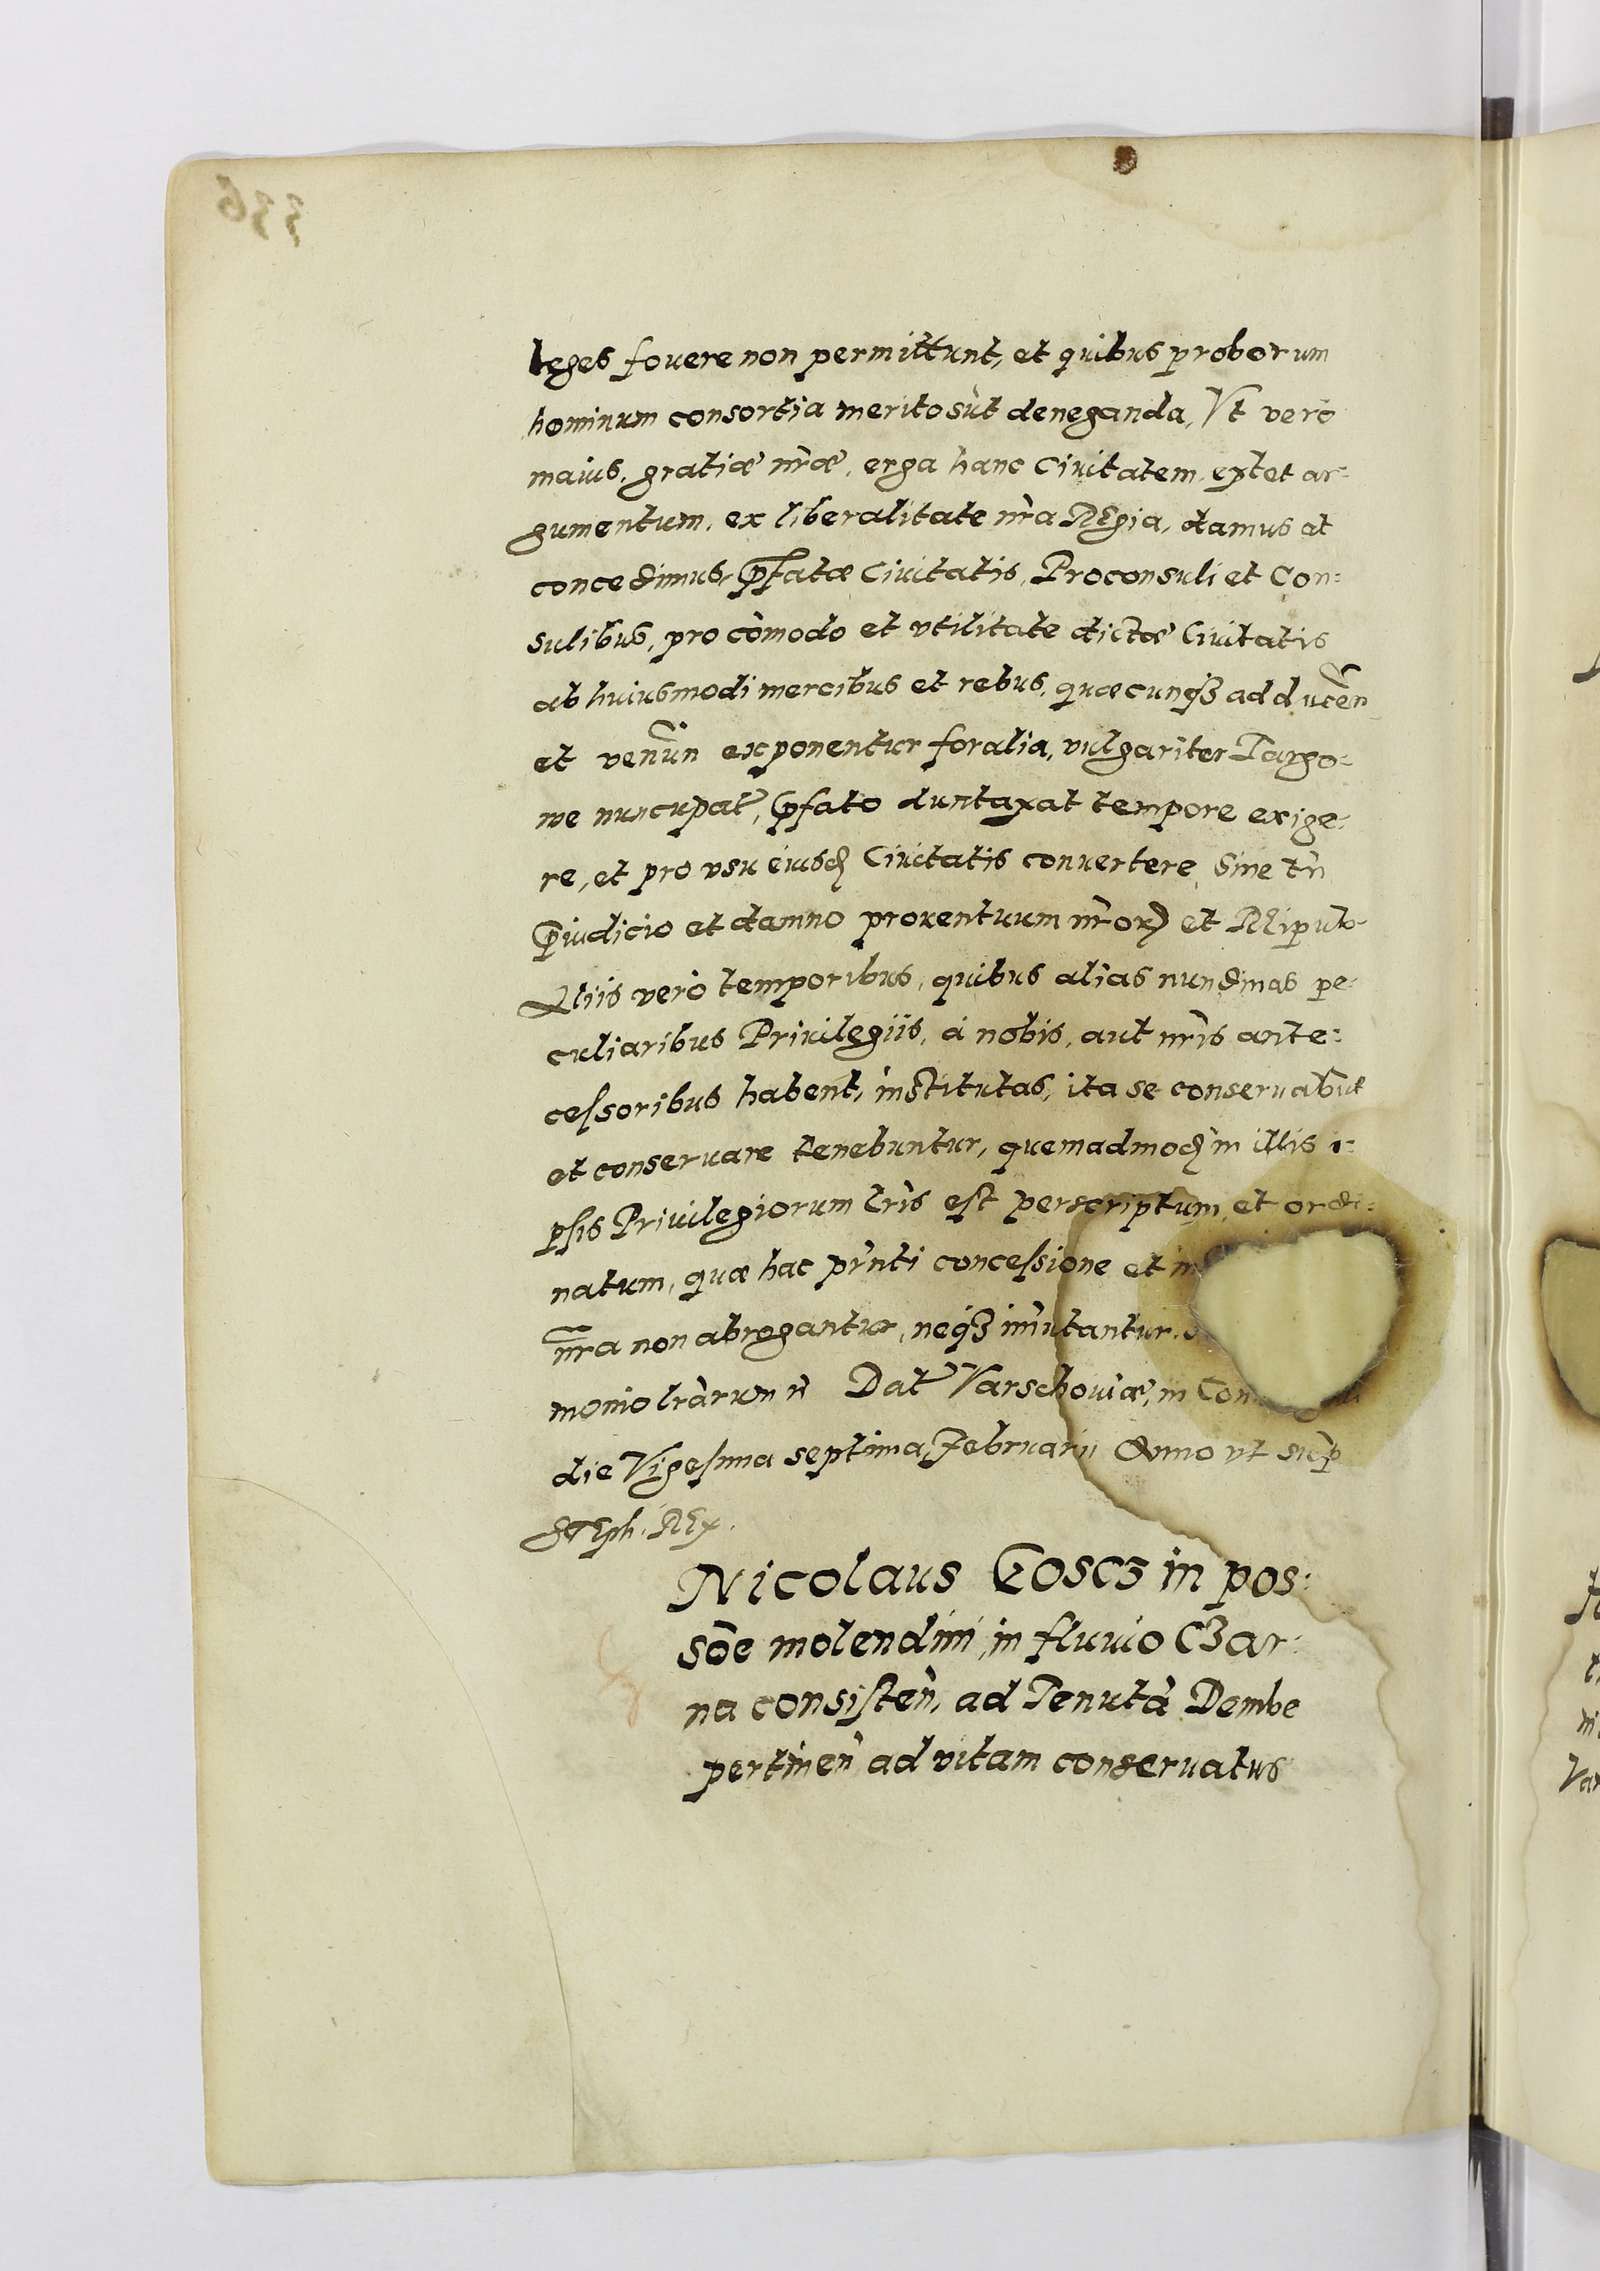 leges fouere non permittunt, et quibus proborum
hominum consortia merito sūt deneganda, Vt vero
maius, gratiæ nr̃æ, erga hanc Ciuitatem, extet ar-
gumentum, ex liberalitate nr̃a Regia, damus at
concedimus, p̃fatæ Ciuitatis, Proconsuli et Con:
sulibus, pro cōmodo et vtilitate dictæ Ciuitatis
ab huiusmodi mercibus et rebus, quæcunqꝫ adducen̄
et venun̄ exponentur foralia, vulgariter Targo-
we nuncupat̃, p̃fato duntaxat tempore exige-
re, et pro vsu eiusđ Ciuitatis conuertere, Sine tñ
p̃iudicio et damno prouentuum nr̃orꝫ et Reipub-
Aliis verò temporibus, quibus alias nundinas pe-
culiaribus Priuilegiis, à nobis, aut nr̃is ante:
cessoribus habent, institutas, ita se conseruabūt
et conseruare tenebuntur, quemadmođ in illis i-
psis Priuilegiorum lr̃is est perscriptum, et ordi-
natum, quæ hac pñti concessione et
nr̃a non abrogantur, neqꝫ im̃utantur.
monio lr̃arum ñ Dat̃ Varschouiæ, in Con
die Vigesima septima, Februarii Anno vt sup̃
Steph. Rex.
Nicolaus Goscz in pos:
sõe molendini, in fluuio Czar-
na consisteñ, ad Tenutā Dembe
pertineñ ad vitam conseruatus
336